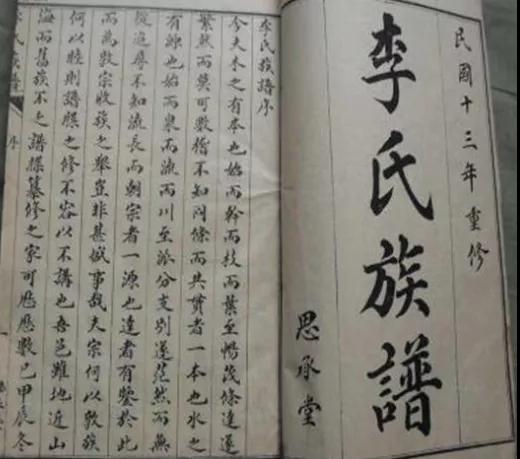 民國十三年重修
李氏族譜
思承堂
李氏族譜序
今夫木之有本也始而幹而枝而葉至暢茂條達遂
繁然而莫可數稽不知同條而共貫者一本也水之
有源也始而泉而流而川至派分支別遂茫然而無
從追尋不知流長而朝宗者一源也達者有鑒於此
而為敦宗收族之舉豈非甚盛事哉夫宗何以敦族
何以睦則譜牒之修不容以不講也吾邑雖地近山
海而舊族不乏譜牒纂修之家可歷歷數已甲辰冬
李氏族譜 序